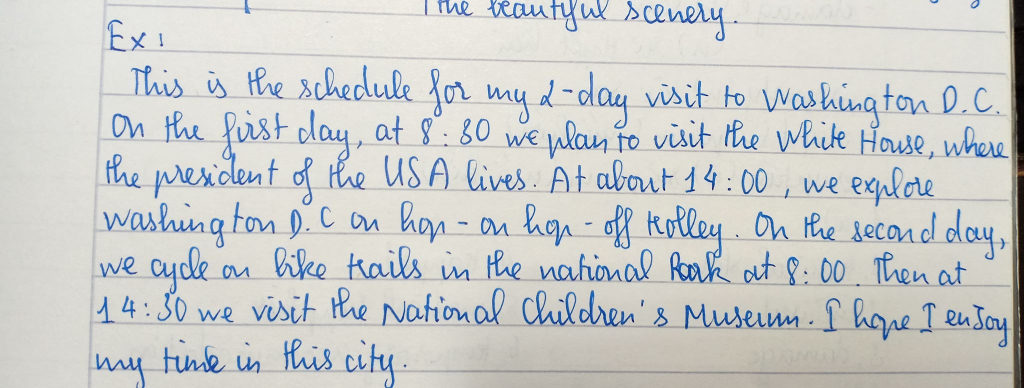 the beautiful scenery.
Ex:
This is the schedule for my 2-day visit to Washington D.C.
On the first day, at 8:30 we plan to visit the White House, where
the president of the USA lives. At about 14:00, we explore
Washington D.C on hop-on hop-off trolley. On the second day,
we cycle on bike trails in the national Park at 8:00. Then at
14:30 we visit the National Children's Museum. I hope I enjoy
my time in this city.